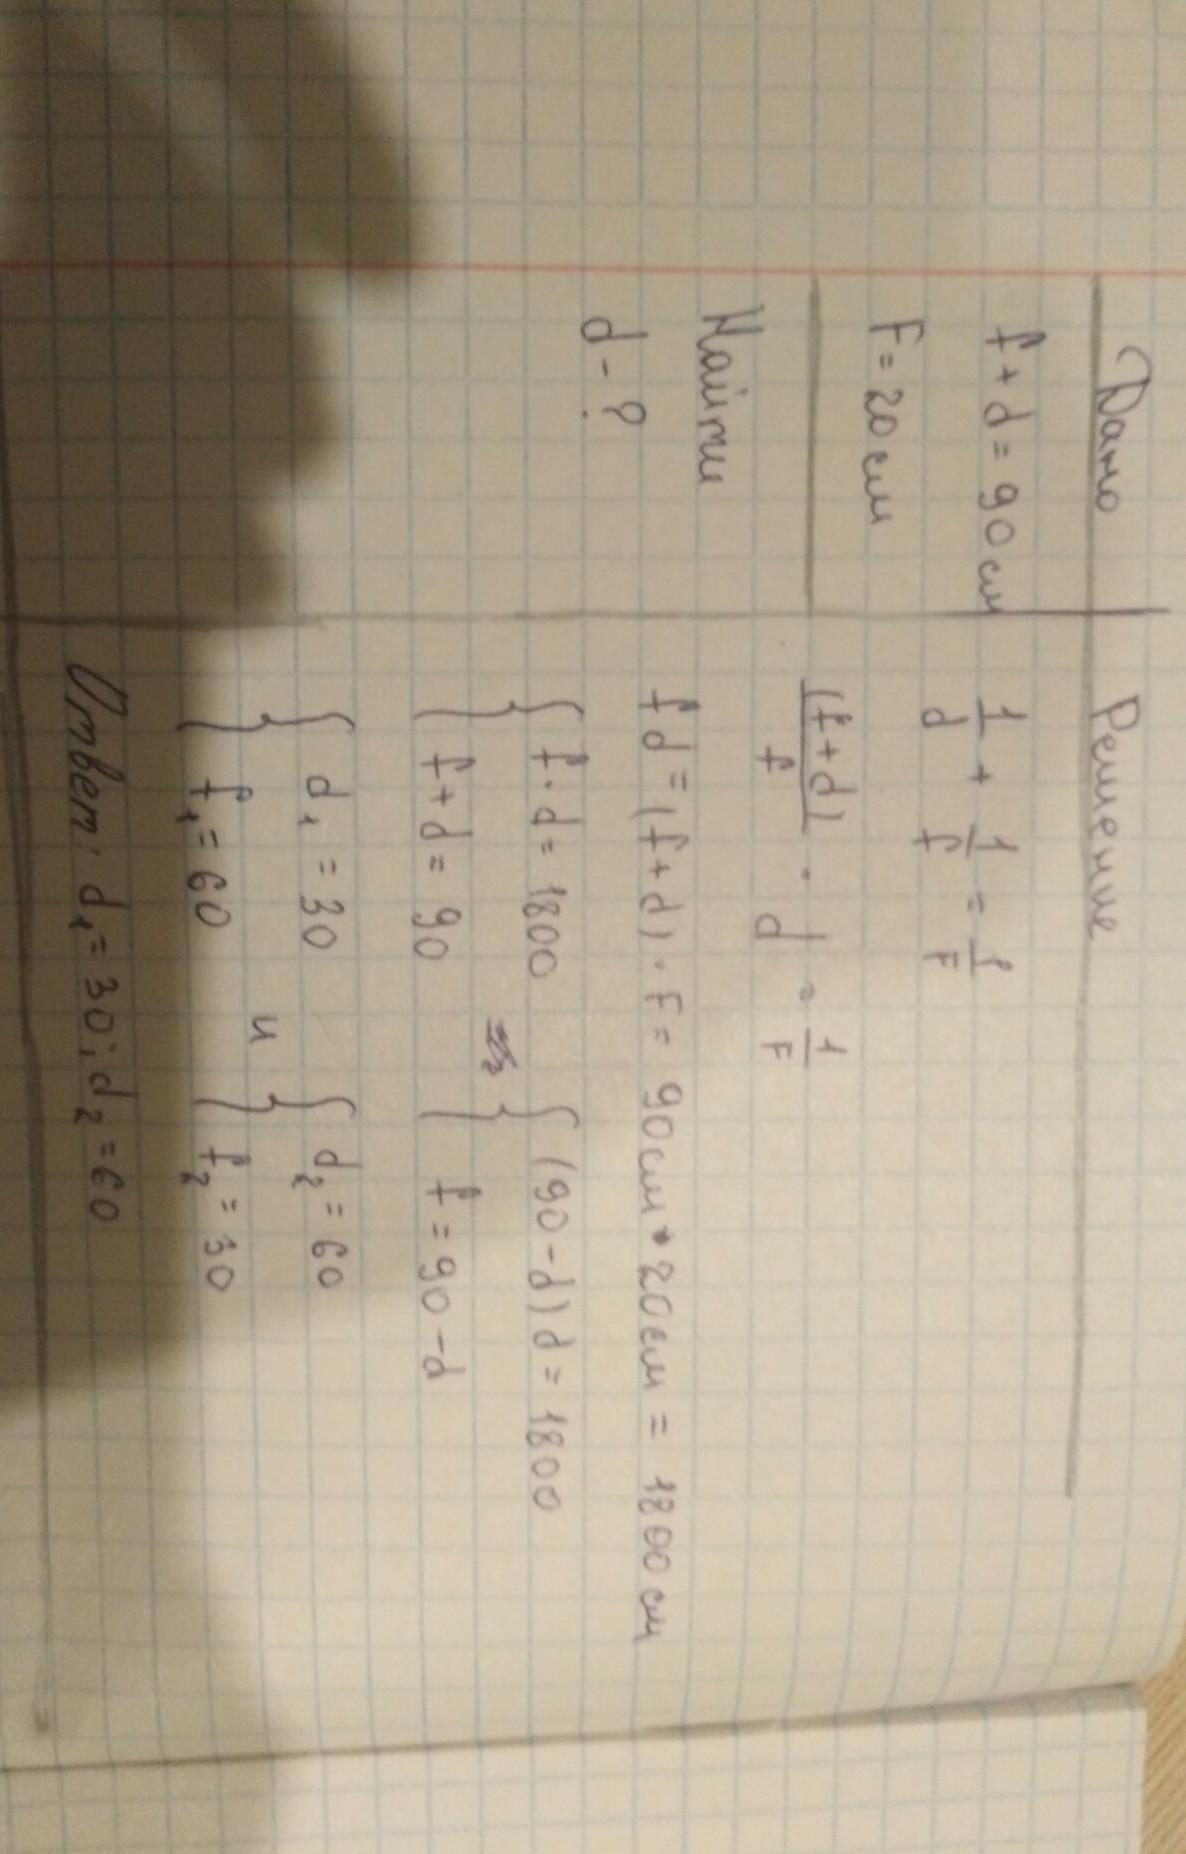 Дано
f + d = 90 см
F = 20 см
Найти
d - ?
Решение
1/d + 1/f = 1/F
(f + d)/f · d = 1/F
fd = (f + d) · F = 90 см • 20 см = 1800 см
{ f · d = 1800 { (90 - d) d = 1800
f + d = 90 f = 90 - d
{ d₁ = 30 и { d₂ = 60
f₁ = 60 f₂ = 30
Ответ: d₁ = 30; d₂ = 60